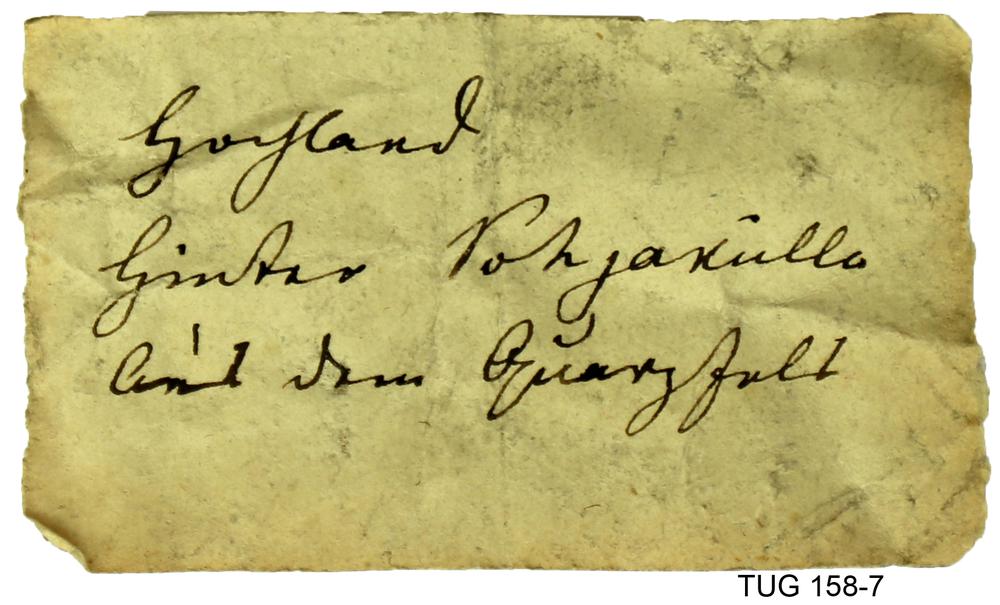 Hochland
Hinter Pohjaküllo
Aus dem Quarzfels
TUG 158-7